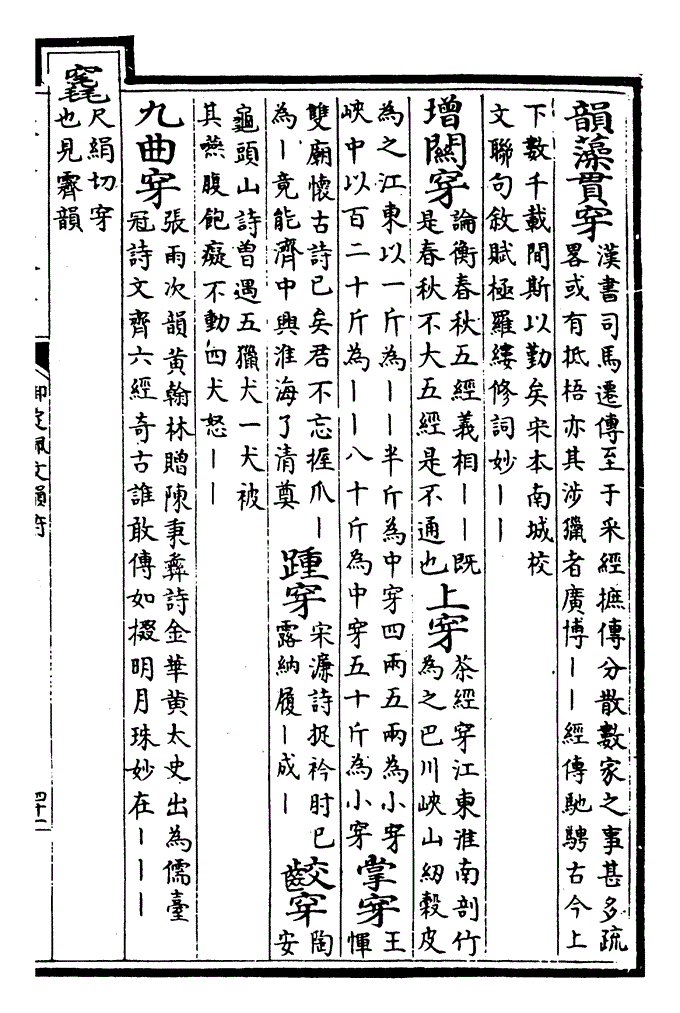 韻藻貫穿漢書司馬遷傳至于采經摭傳分散數家之事甚多疏
畧或有抵梧亦其涉獵者廣博丨丨經傳馳騁古今上
下數千載間斯以勤矣宋本南城校
文聯句敘賦極羅縷修詞妙丨丨
增關穿論衡春秋五經義相丨丨既
是春秋不大五經是不通也上穿茶經穿江東淮南剖竹
為之巴川峽山紉穀皮
為之江東以一斤為丨丨半斤為中穿四兩五兩為小穿
峽中以百二十斤為丨丨八十斤為中穿五十斤為小穿掌穿王
惲
雙廟懷古詩已矣君不忘握爪丨
為丨竟能濟中興淮海了清奠踵穿宋濂詩捉衿肘已
露納履丨成丨齩穿陶
安
龜頭山詩曾遇五獵犬一犬被
其燕腹飽癡不動四犬怒丨丨
九曲穿張雨次韻黃翰林贈陳秉彝詩金華黃太史出為儒臺
冠詩文齊六經奇古誰敢傳如掇明月珠妙在丨丨丨
竁尺絹切穿
也見霽韻
御定佩文韻府
四十一